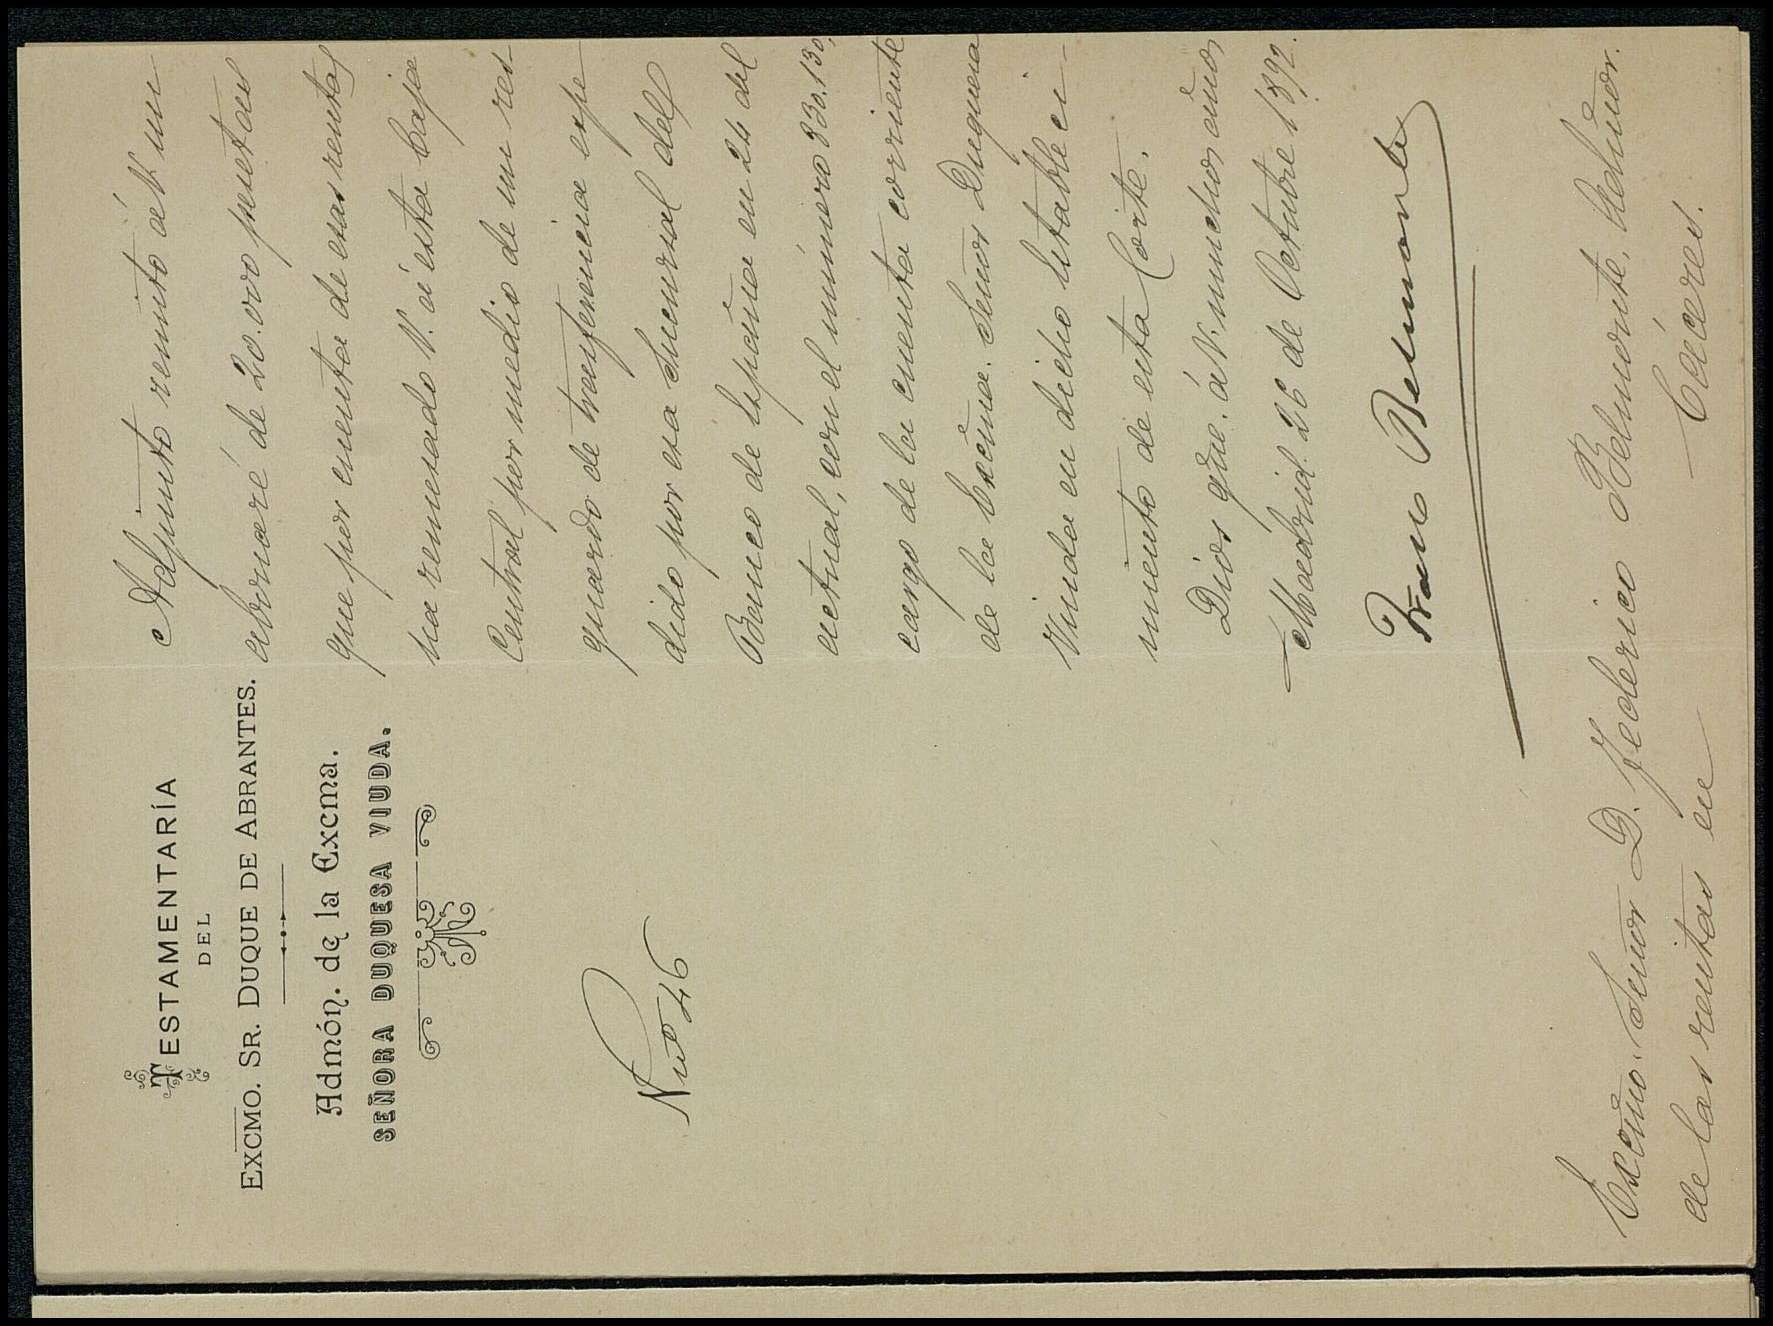 TESTAMENTARÍA
DEL
EXCMO. SR. DUQUE DE ABRANTES.
Admón. de la Excma.
SEÑORA DUQUESA VIUDA.
Nº 46
Adjunto remito á V. un
abonaré de 20.000 pesetas
que por cuenta de esas rentas
ha remesado V. á esta Caja
Central por medio de un res-
guardo de transferencia espe-
dido por esa Sucursal del
Banco de España en 24 del
actual, con el número 330.130,
cargo de la cuenta corriente
de la Excma. Señora Duquesa
Viuda en dicho Estableci-
miento de esta Corte.
Dios gde. á V. muchos años
Madrid 26 de Octubre 1892.
Franco Belmonte
Excmo. Señor D. Federico Belmonte, Admor.
de las rentas en Cáceres.